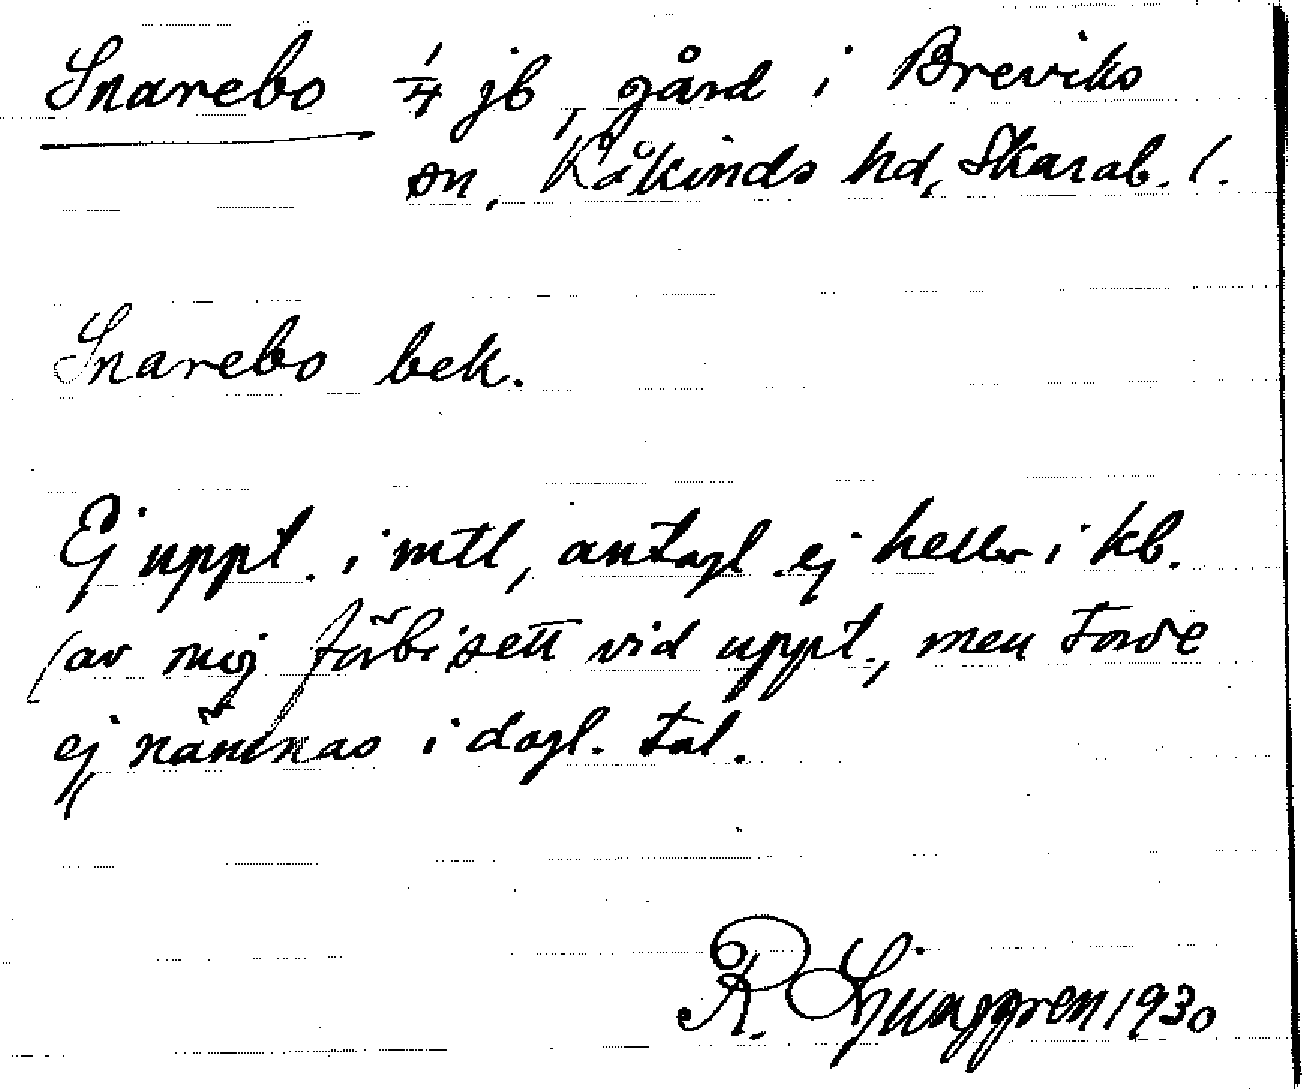 Snarebo 1/4 jb, gård i Breviks
sn, Kåkinds hd, Skarab. l.
Snarebo bek.
Ej uppt. i mtl, antagl ej heller i kb.
(av mig förbisett vid uppt., men torde
ej nämnas i dagl. tal.
R. Ljunggren 1930